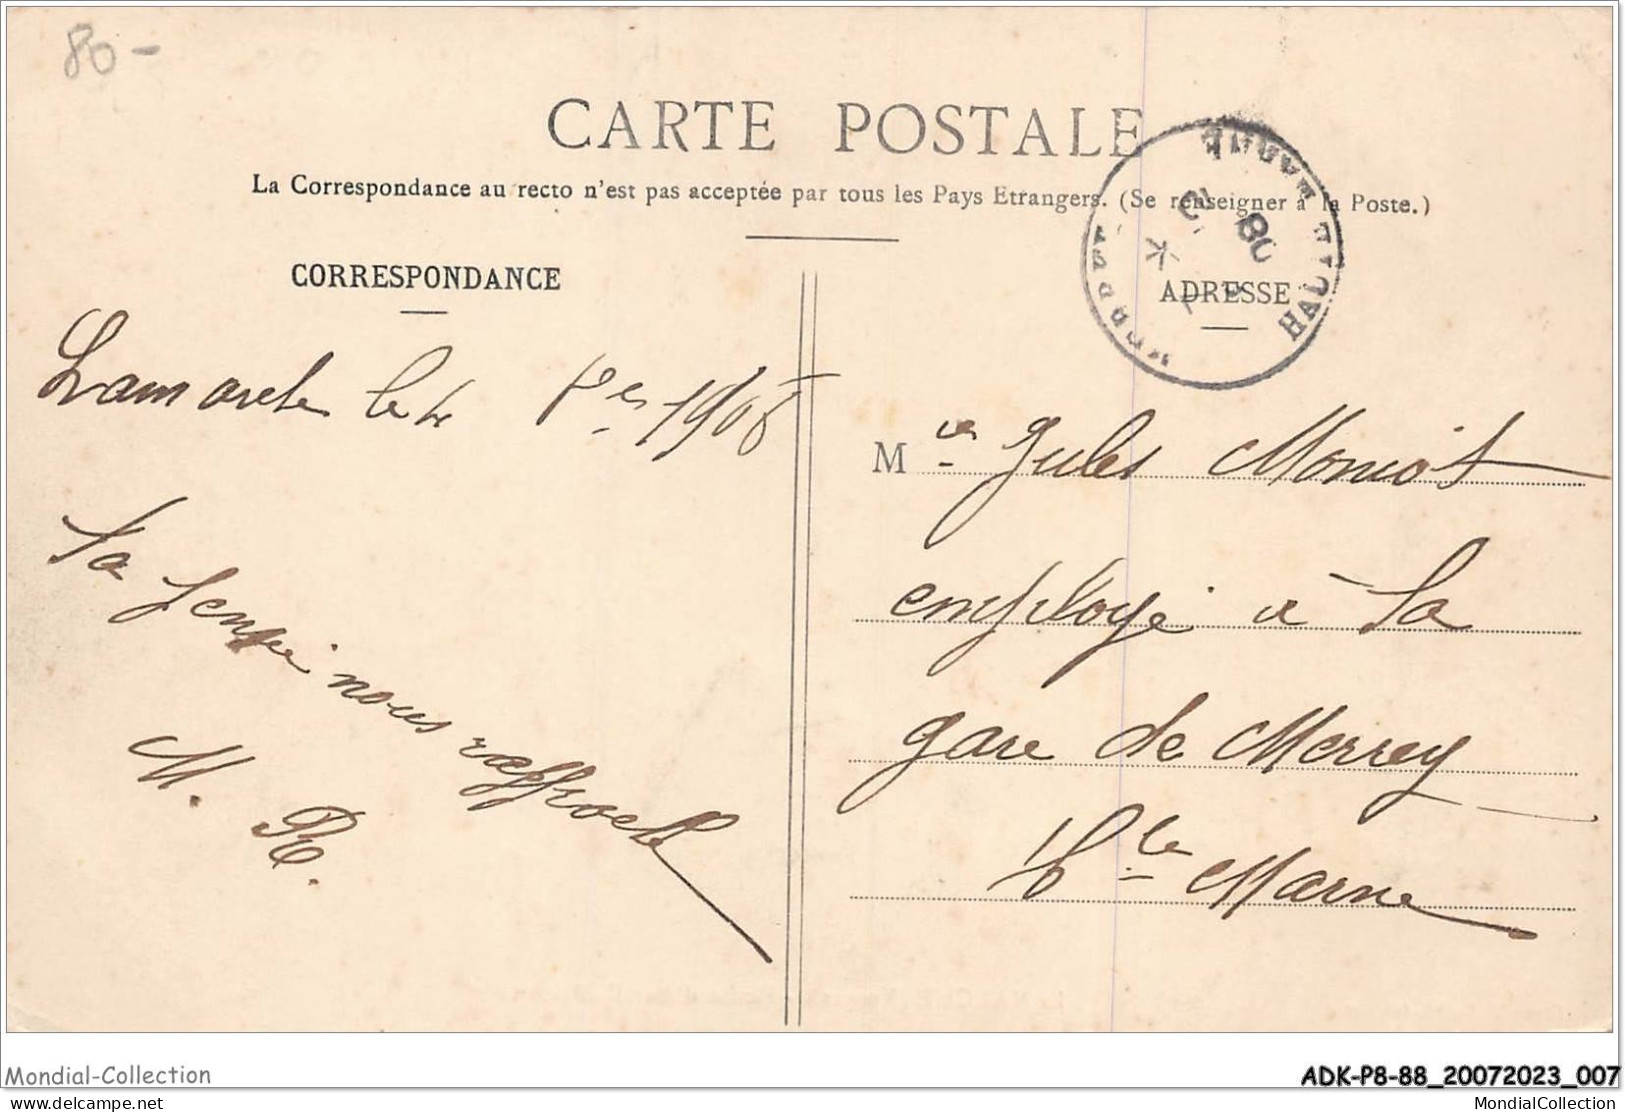 80 -
CARTE POSTALE
La Correspondance au recto n'est pas acceptée par tous les Pays Etrangers. (Se renseigner à la Poste.)
CORRESPONDANCE
ADRESSE
HAUTE MARNE
08
Lamarche le 4 1908
La pensée nous rapproche
M. R.
M Jules Moniot
employé à la
gare de Merrey
Hte Marne
Mondial-Collection
ADK-P8-88_20072023_007
delcampe.net
MondialCollection